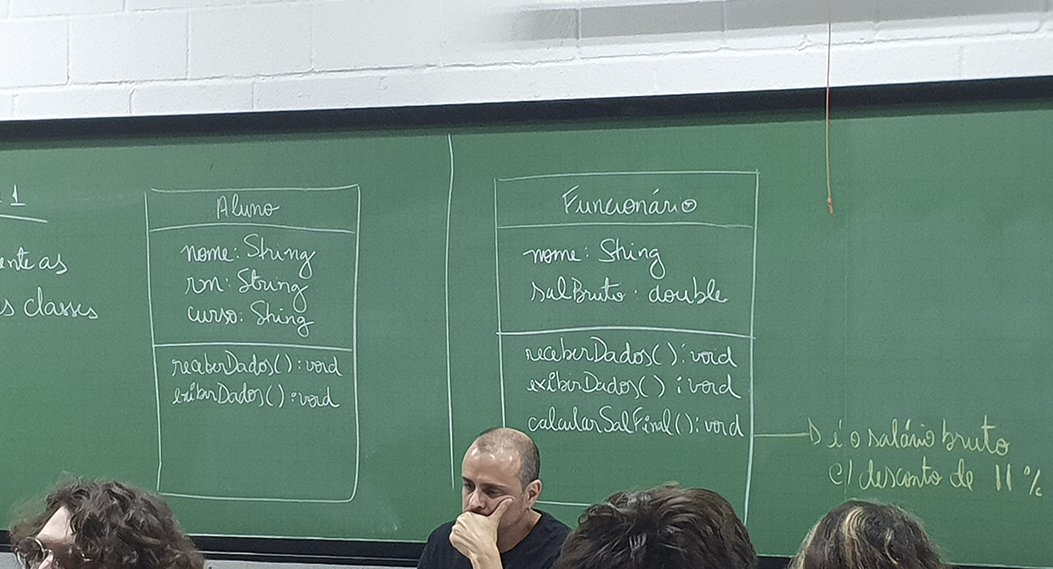 1
ente as
s classes
Aluno
nome: String
rm: String
curso: String
receberDados(): void
exibirDados(): void
Funcionário
nome: String
salBruto: double
receberDados(): void
exibirDados(): void
calcularSalFinal(): void
é o salário bruto
c/ desconto de 11%